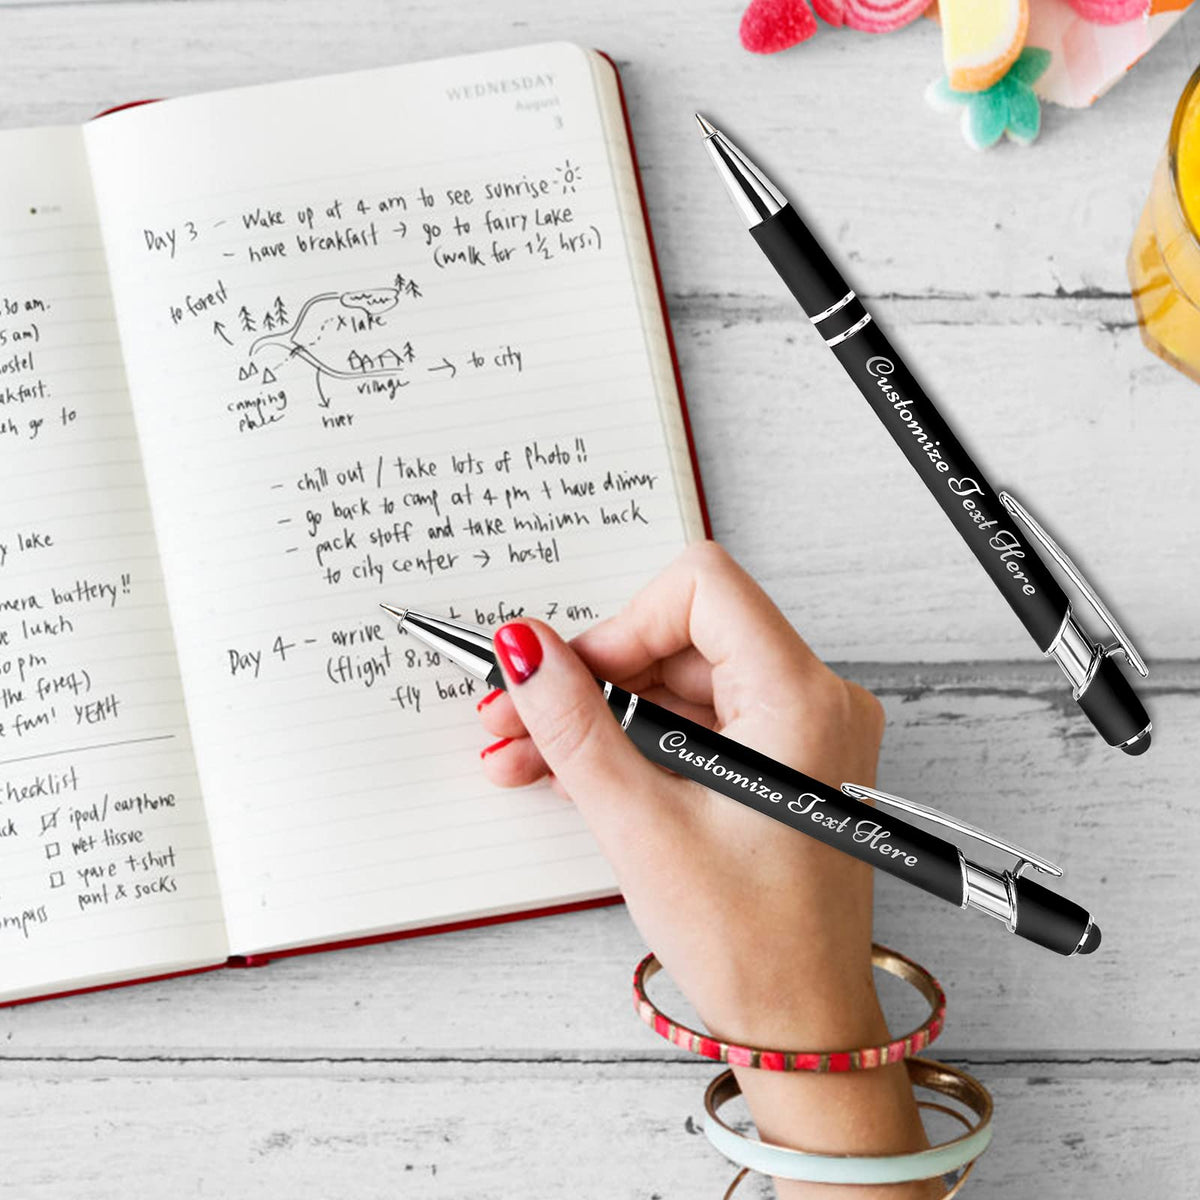 :30 am.
5 am)
ostel
akfast.
go to
y lake
mera battery!!
e lunch
0 pm
the forest)
e fun! YEAH
checklist
ck ☑ ipod/earphone
☐ wet tissue
☐ spare t-shirt
pant & socks
ompass
WEDNESDAY
August
3
Day 3 - Wake up at 4 am to see sunrise
- have breakfast → go to fairy Lake
(walk for 1½ hrs.)
to forest
x lake
village → to city
camping
place
river
- chill out / take lots of photo!!
- go back to camp at 4 pm + have dinner
- pack stuff and take minivan back
to city center → hostel
Day 4 - arrive before 7 am.
(flight 8.30
fly back
Customize Text Here
Customize Text Here